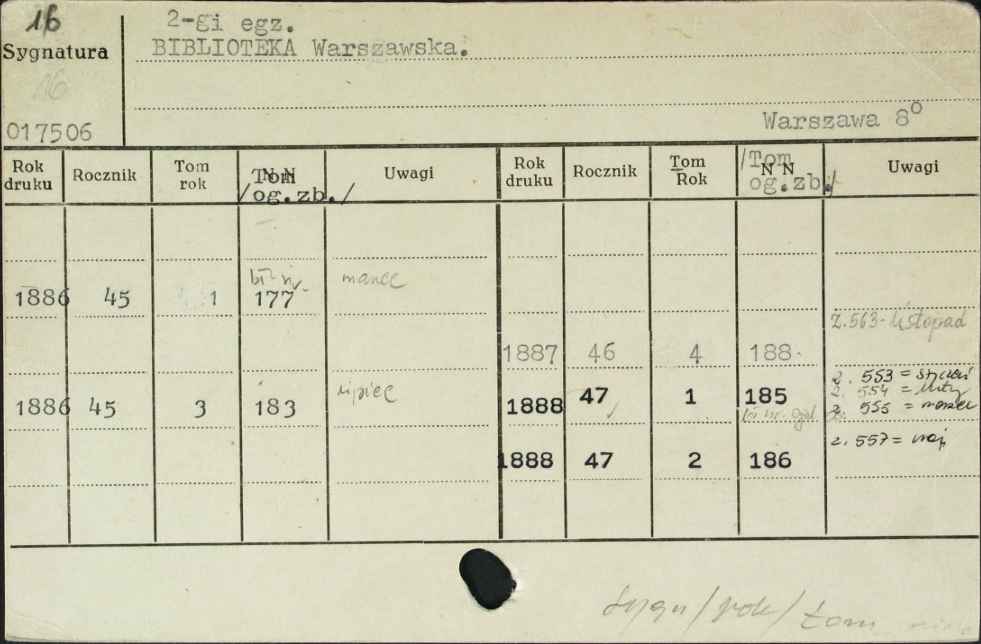 16
2-gi egz.
Sygnatura
BIBLIOTEKA Warszawska.
16
017506
Warszawa 8°
Rok druku Rocznik Tom rok N N Tom /og.zb./ Uwagi Rok druku Rocznik Tom Rok N N /Tom og.zb./ Uwagi
1886 45 1 177 marzec
z.563-listopad
1887 46 4 188
1886 45 3 183 lipiec
z. 553 = styczeń
z. 554 = luty
1888 47 1 185 z. 555 = marzec
z. 557 = maj
1888 47 2 186
sygn/rok/tom